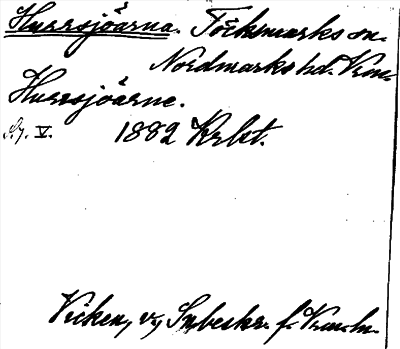 Hurrsjöarna. Töcksmarks sn.
Nordmarks hd. Vrm.
Hurrsjöarne.
Sj. V. 1882 Krbt.
Vicken, v., Snbeskr. f. Vrm. ln.